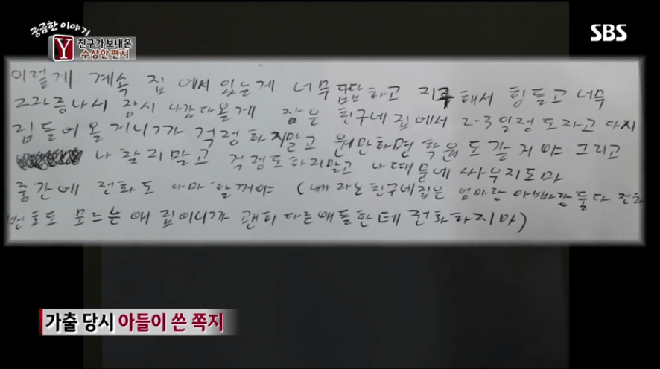 궁금한 이야기
Y 친구가 보내온
수상한 편지
SBS
이렇게 계속 집에서 있는게 너무 답답하고 지루해서 힘들고 너무
짜증나서 잠시 나갔다올게 잠은 친구네 집에서 2-3일정도 자고 다시
집 들어올거니까 걱정하지말고 웬만하면 학원도 갈거야 그리고
나 찾지말고 걱정도하지말고 나때문에 싸우지도마
중간에 전화도 아마 할꺼야 (내가 자는 친구네집은 엄마랑 아빠랑 둘다 전화
번호도 모르는 애 집이니까 괜히 다른애들한테 전화하지마)
가출 당시 아들이 쓴 쪽지